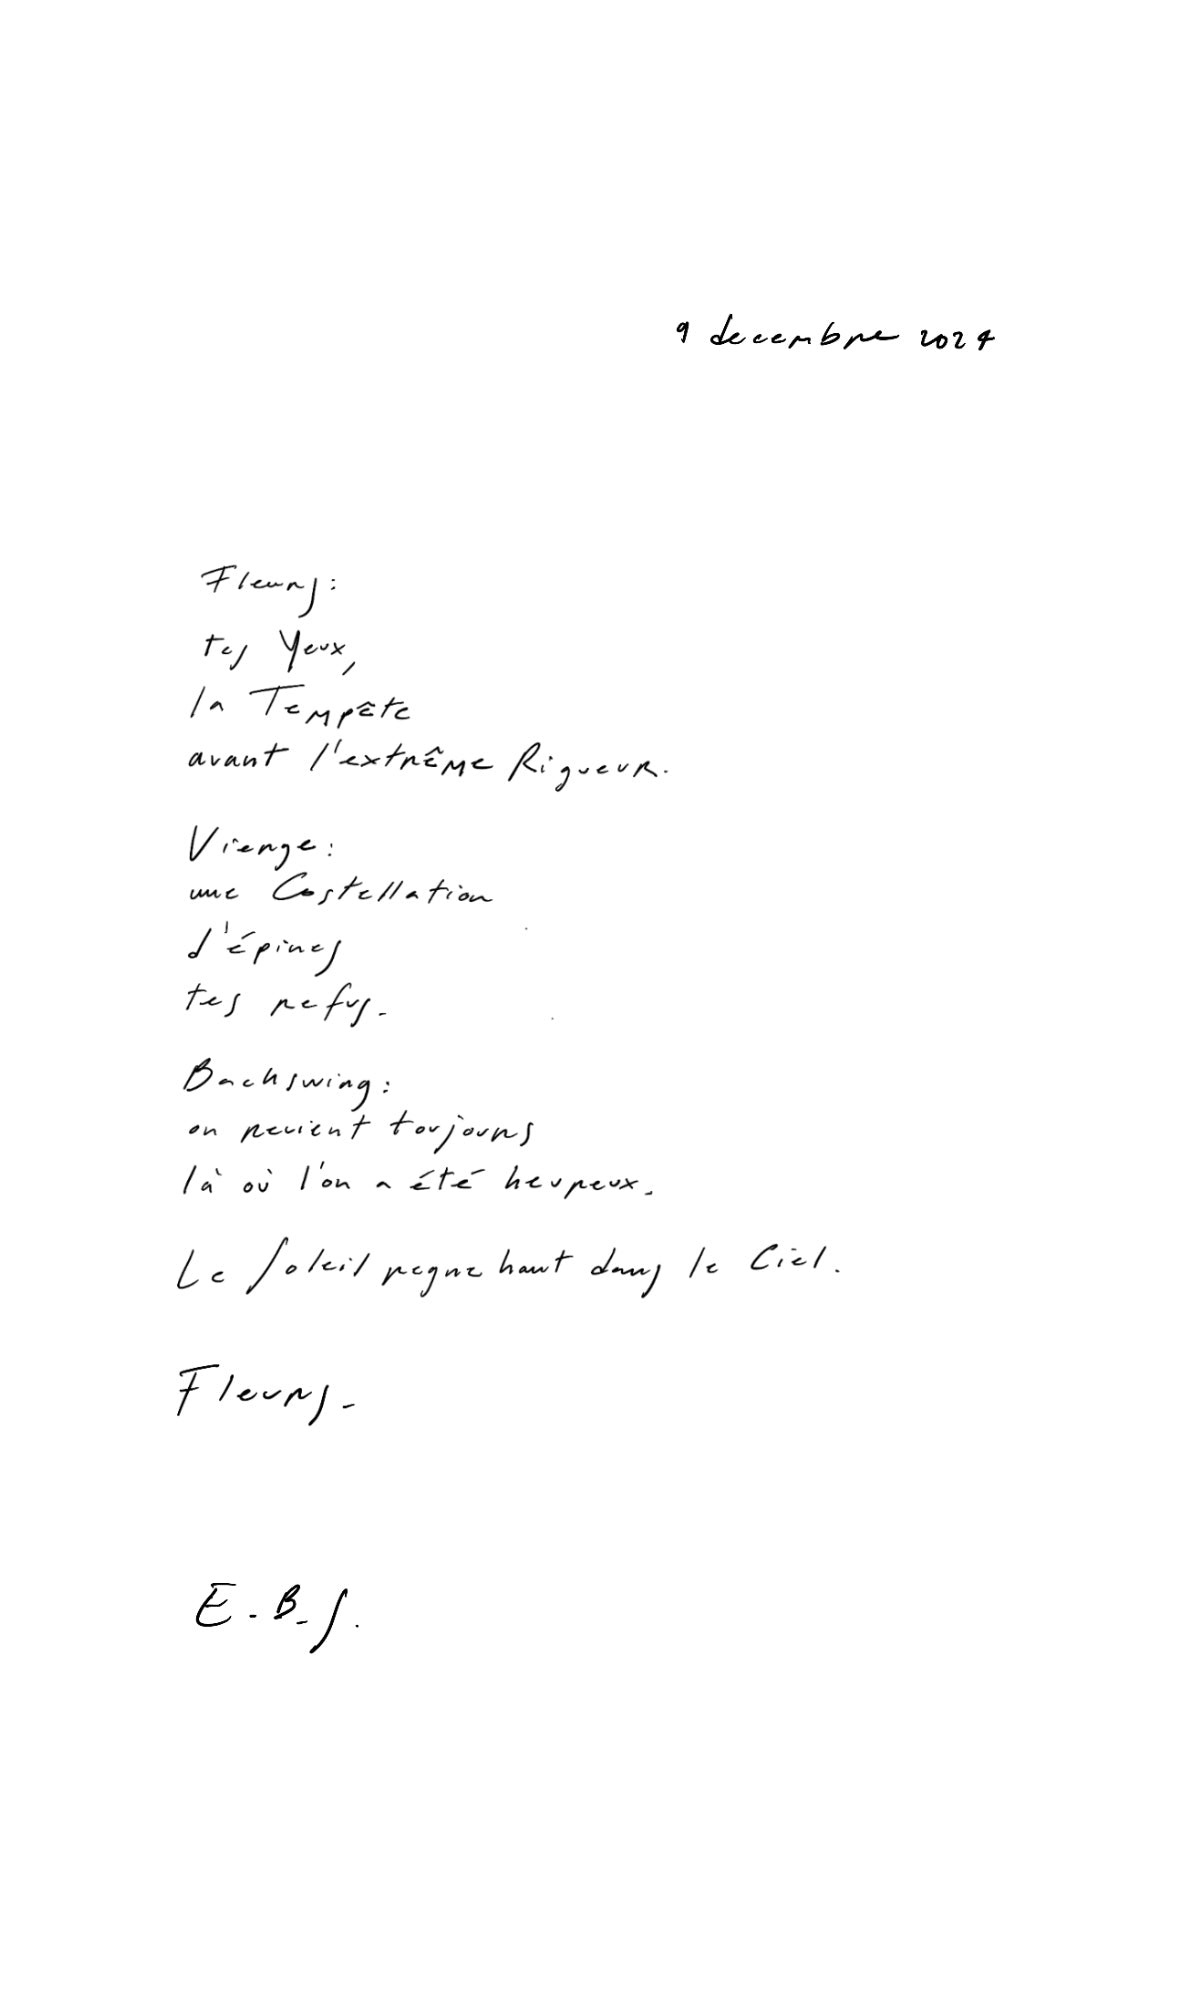 9 decembre 2024
Fleurs:
tes Yeux,
la Tempête
avant l'extrême Rigueur.
Vierge:
une Costellation
d'épines
tes refus.
Backswing:
on revient toujours
là où l'on a été heureux.
Le Soleil regne haut dans le Ciel.
Fleurs.
E.B.S.